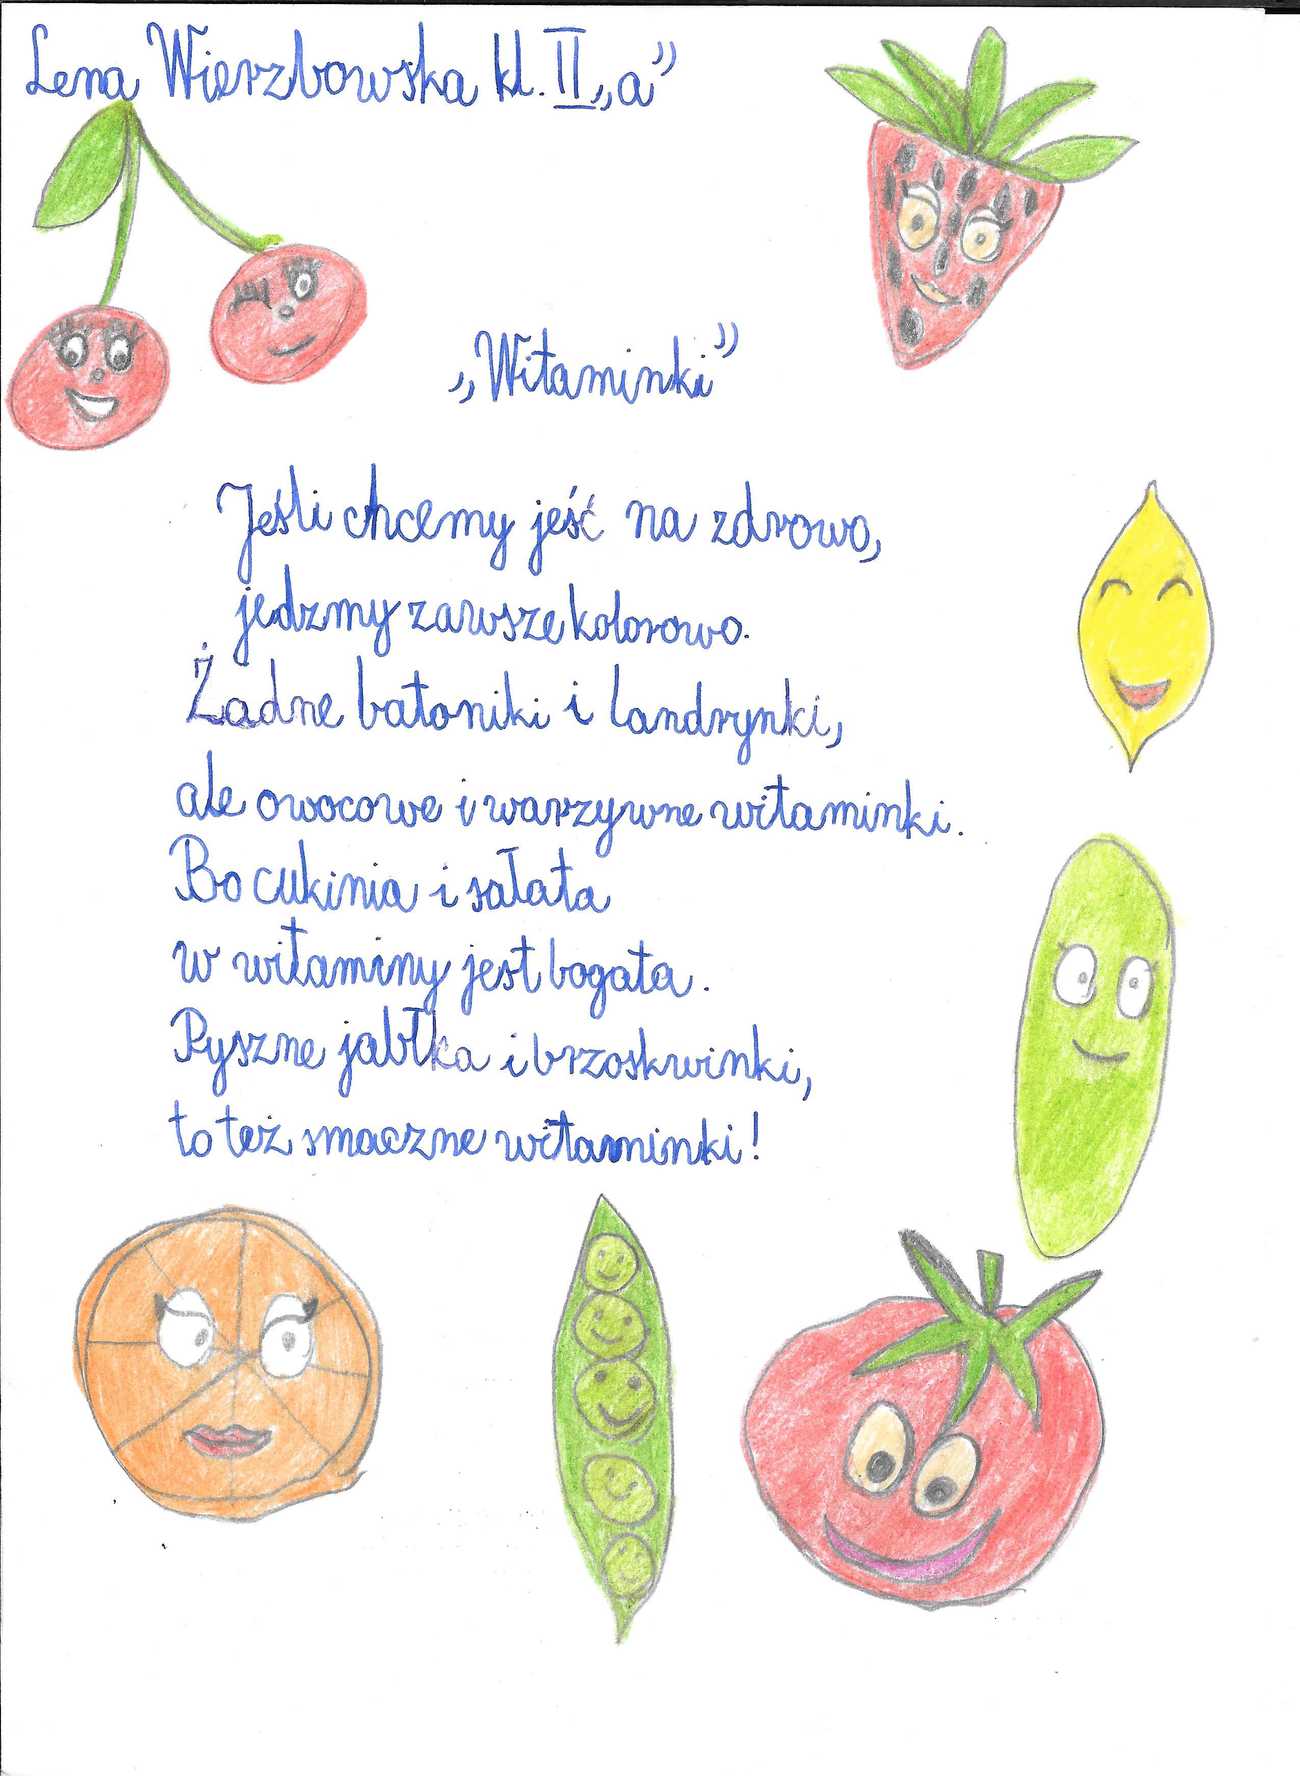 Lena Wierzbowska kl. II „a”
„Witaminki”
Jeśli chcemy jeść na zdrowo,
jedzmy zawsze kolorowo.
Żadne batoniki i landrynki,
ale owocowe i warzywne witaminki.
Bo cukinia i sałata
w witaminy jest bogata.
Pyszne jabłka i brzoskwinki,
to też smaczne witaminki!